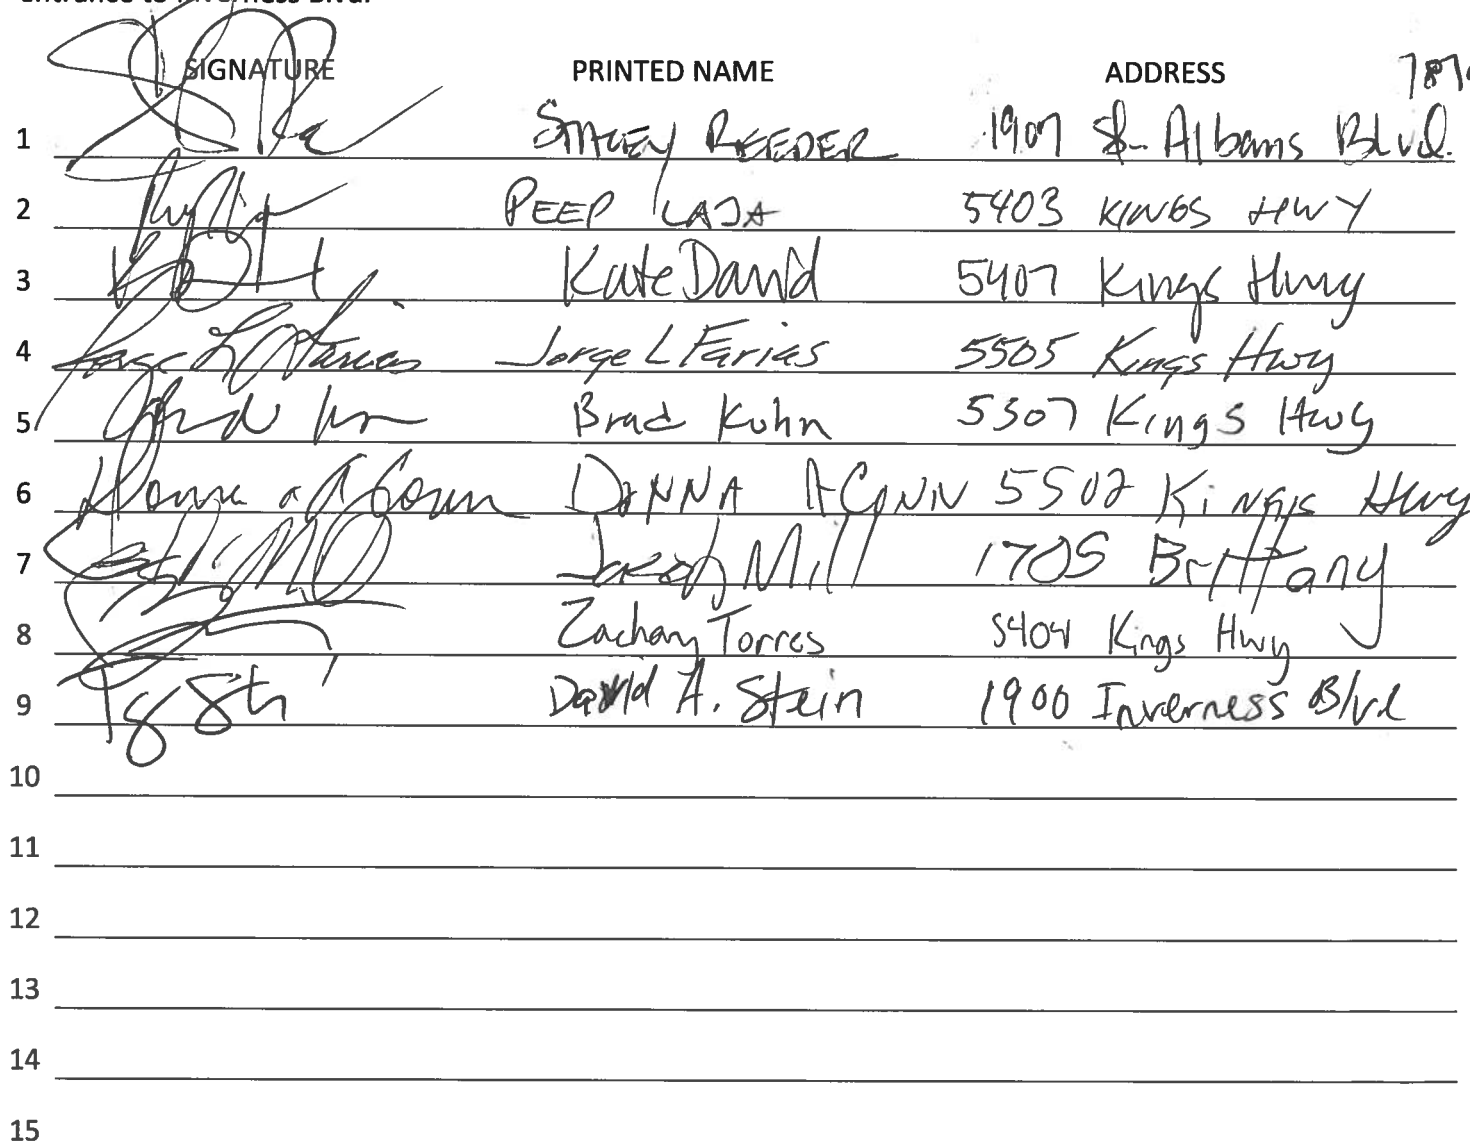 SIGNATURE PRINTED NAME ADDRESS
1 STACEY REEDER 1907 St. Albans Blvd.
2 PEEP LAJA 5403 KINGS HWY
3 Kate David 5407 Kings Hwy
4 Jorge L Farias Jorge L Farias 5505 Kings Hwy
5 Brad Kuhn 5307 Kings Hwy
6 DONNA 5502 Kings Hwy
7 Mill 1705 Brittany
8 Zachary Torres 5404 Kings Hwy
9 David A. Stein 1900 Inverness Blvd
10
11
12
13
14
15